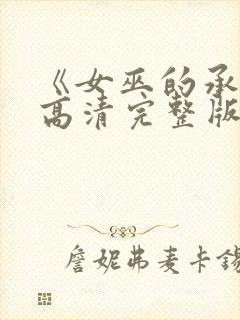 《女巫的承
高清完整版
詹妮弗麦卡锡